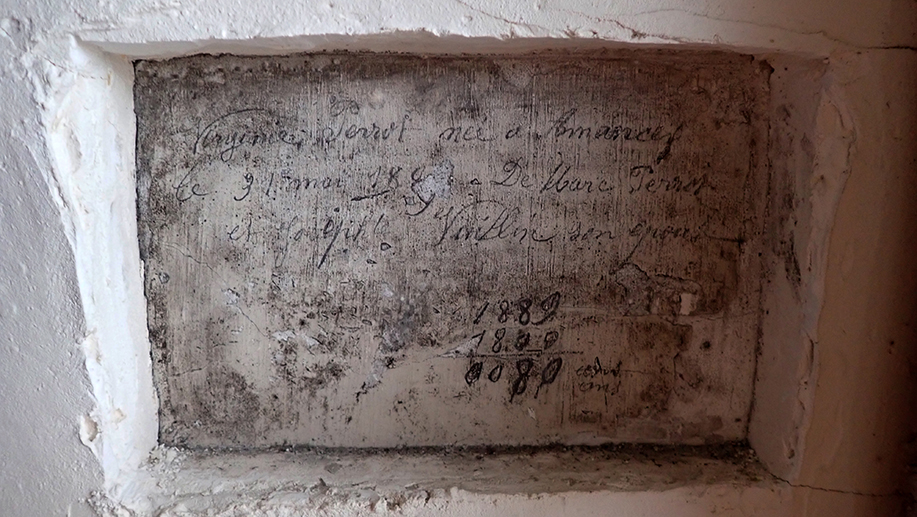 Virginie Perrot née à Amancey
le 31 mai 18 De Marc Perrot
et Vaillin son
1889
1809
0080